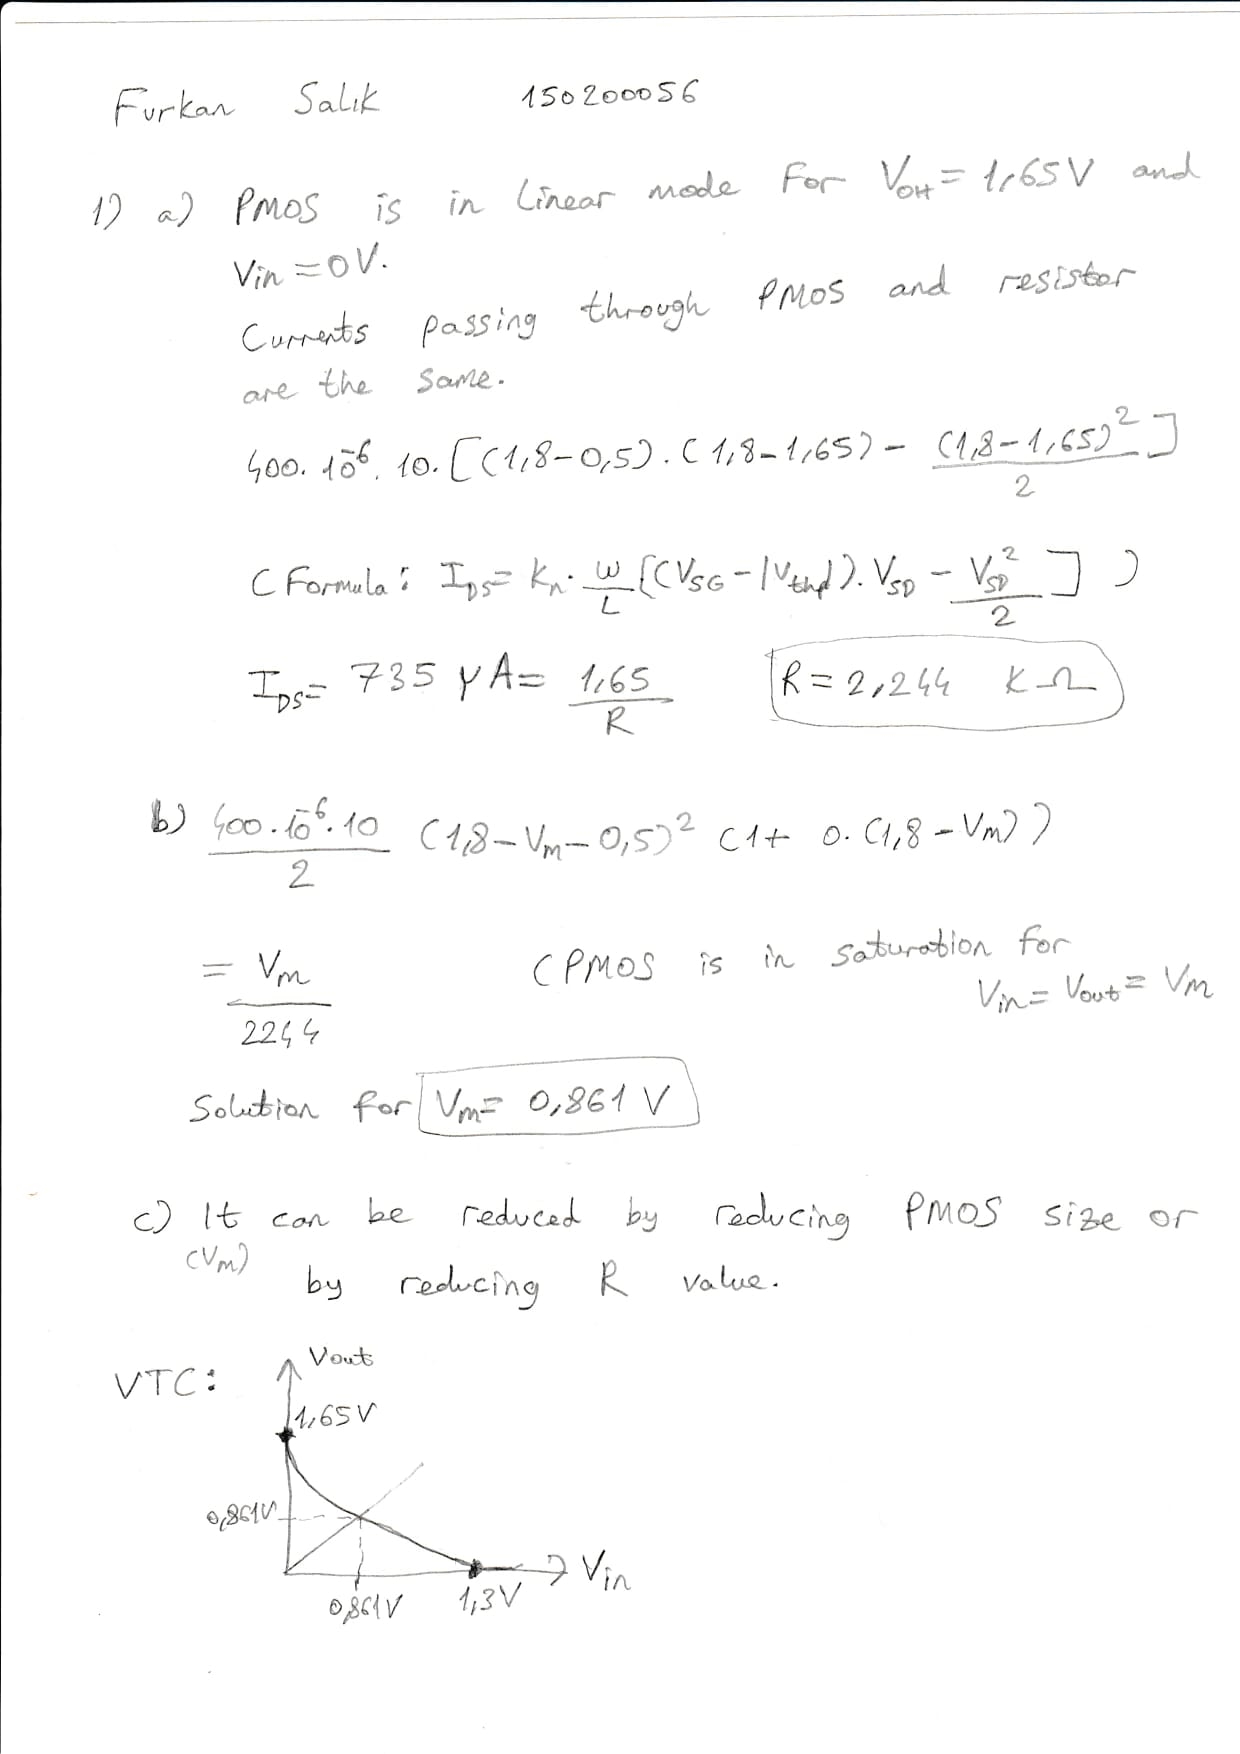 Furkan Salık 150200056
1) a) PMOS is in linear mode for V_OH = 1,65V and
Vin = 0V.
Currents passing through PMOS and resistor
are the same.
400. 10^-6. 10. [(1,8-0,5). (1,8-1,65) - (1,8-1,65)^2/2]
(Formula: I_DS = K_n. W/L [(V_SG - |V_thp|). V_SD - V_SD^2/2])
I_DS = 735 μA = 1,65/R R = 2,244 KΩ
b) 400. 10^-6. 10/2 (1,8 - V_m - 0,5)^2 (1 + 0. (1,8 - V_m))
= V_m/2244 (PMOS is in saturation for
Vin = Vout = V_M
Solution for V_m = 0,861 V
c) It can be reduced by reducing PMOS size or
(V_m)
by reducing R value.
VTC:
Vout
1,65V
0,861V
0,861V
1,3V
Vin